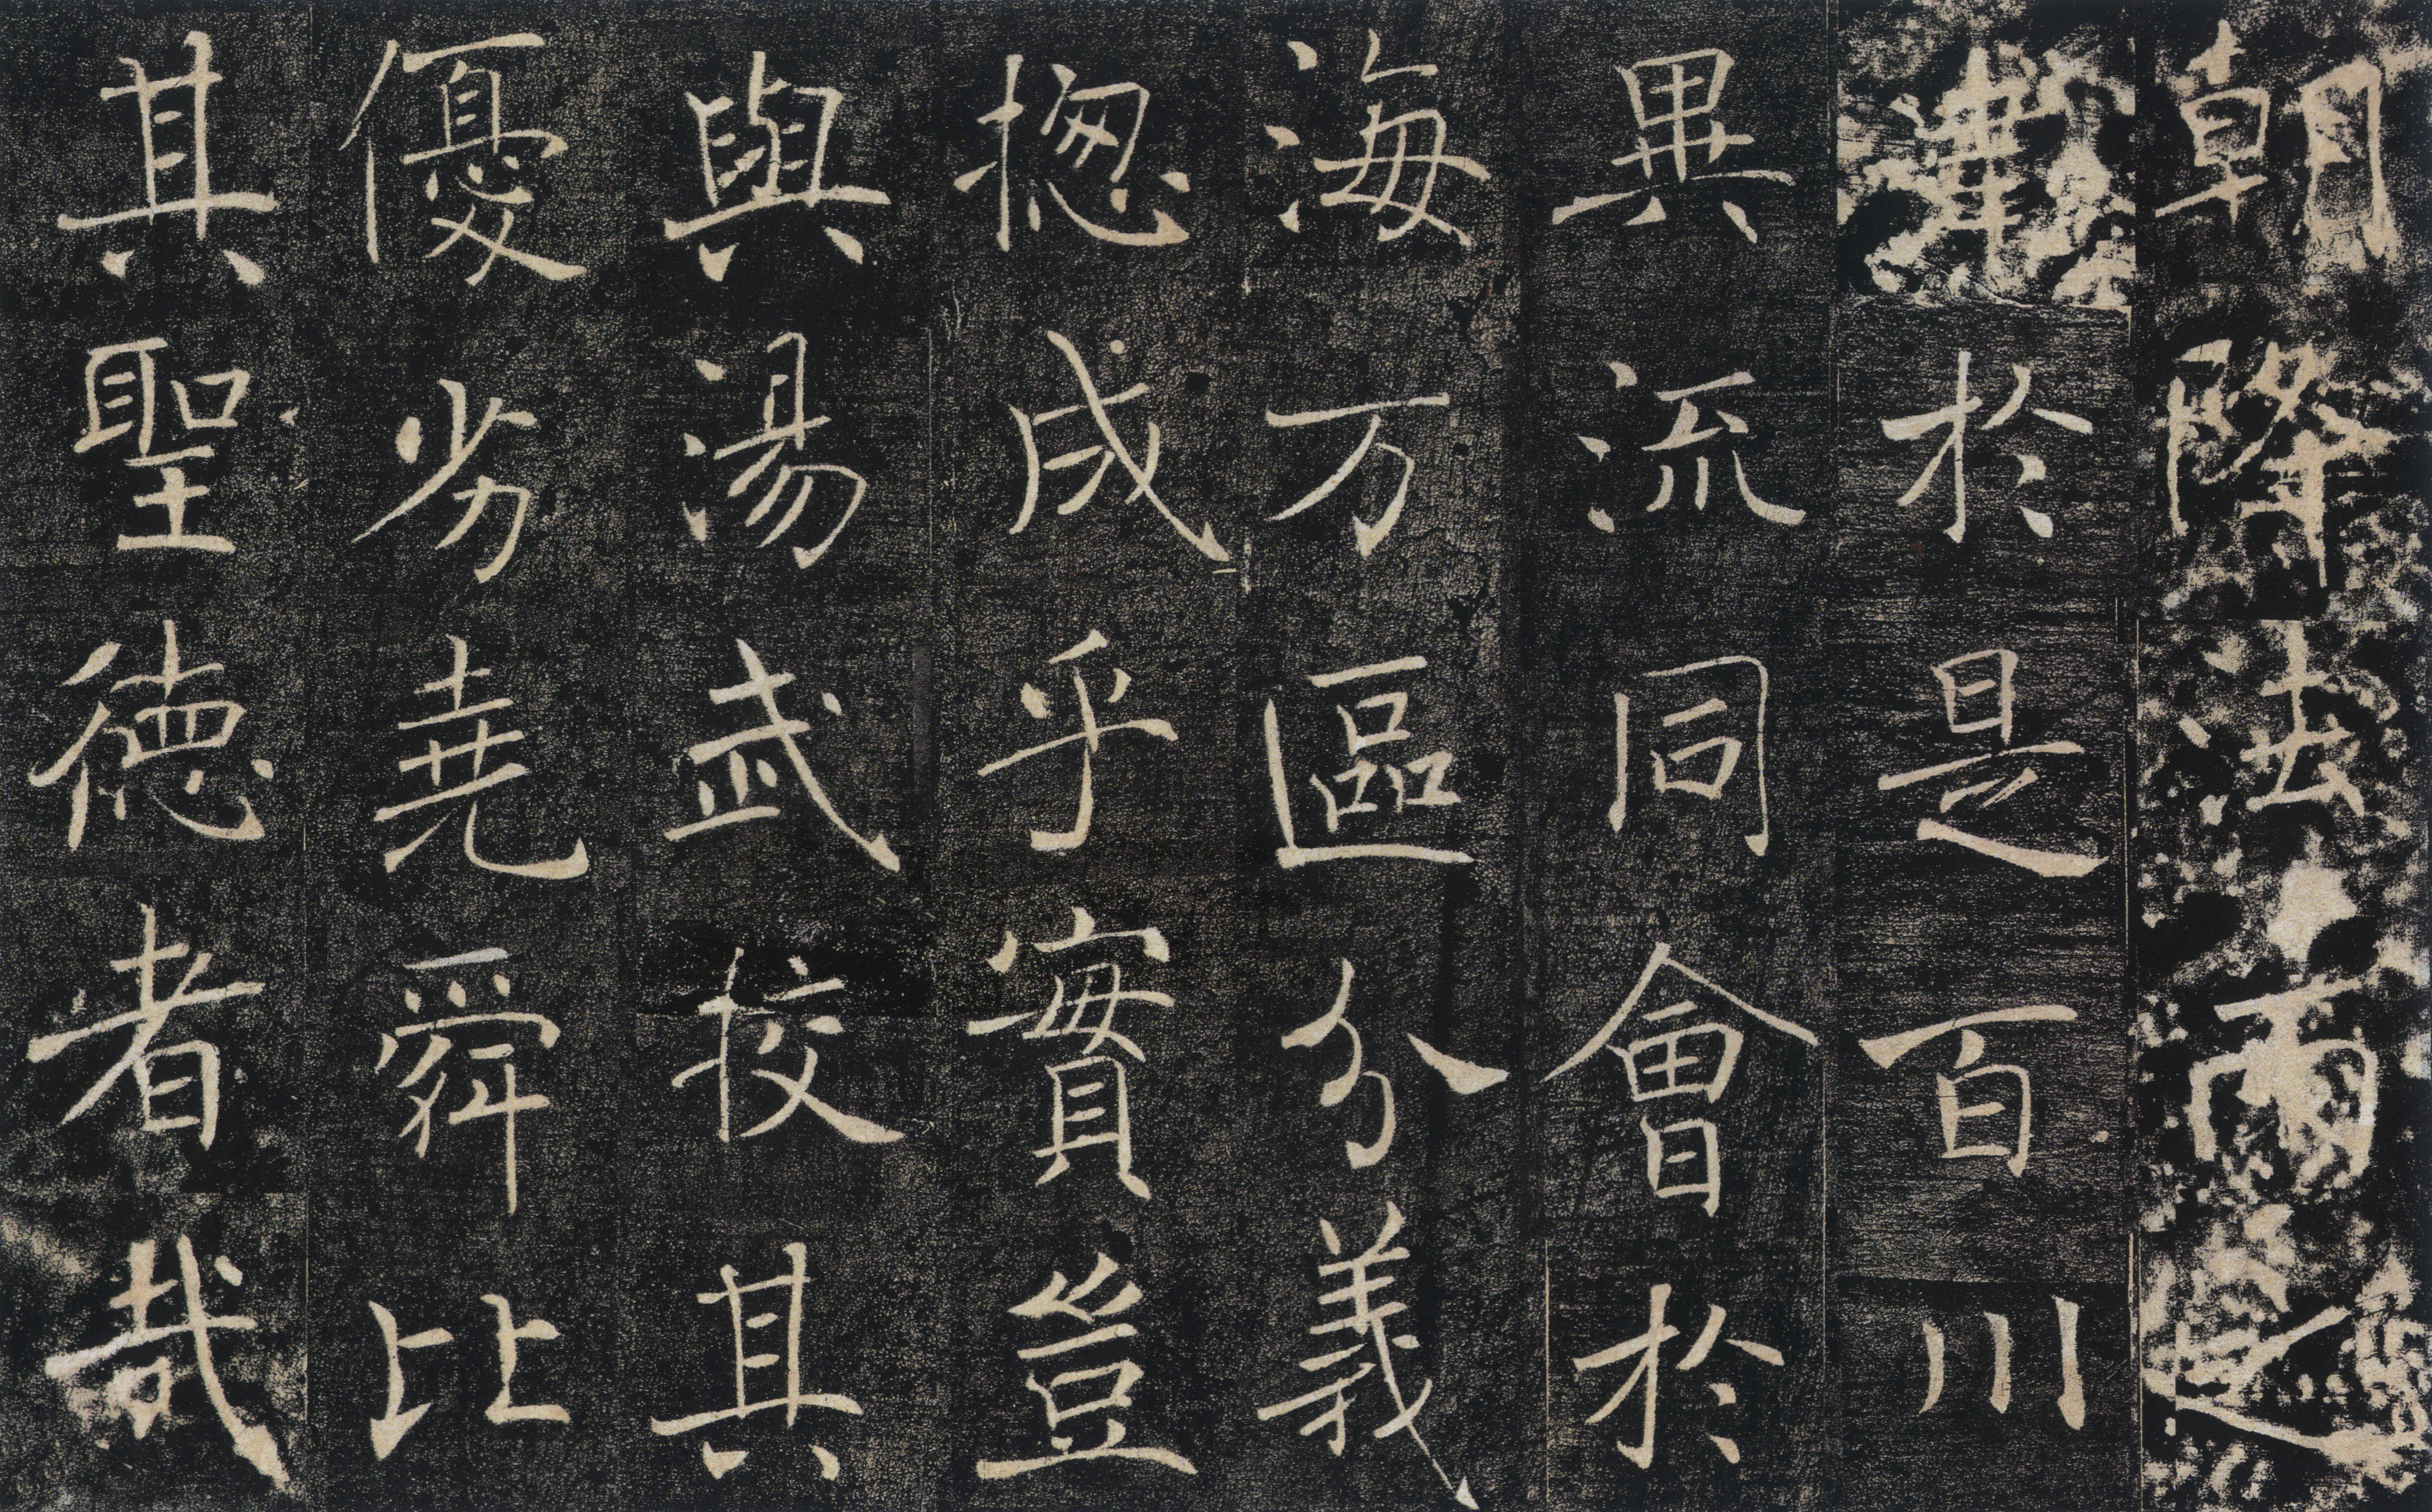 朝降法
於是百川
異流同會於
海万區分義
揔成乎實豈
與湯武校其
優劣堯舜比
其聖徳者哉